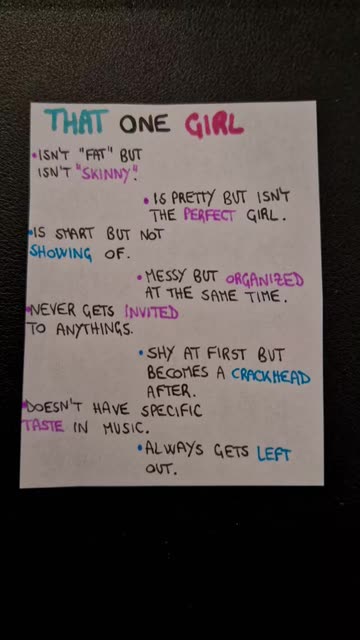 THAT ONE GIRL
•ISN'T "FAT" BUT
ISN'T "SKINNY".
• IS PRETTY BUT ISN'T
THE PERFECT GIRL.
•IS SMART BUT NOT
SHOWING OF.
•MESSY BUT ORGANIZED
AT THE SAME TIME.
•NEVER GETS INVITED
TO ANYTHINGS.
•SHY AT FIRST BUT
BECOMES A CRACKHEAD
AFTER.
•DOESN'T HAVE SPECIFIC
TASTE IN MUSIC.
•ALWAYS GETS LEFT
OUT.